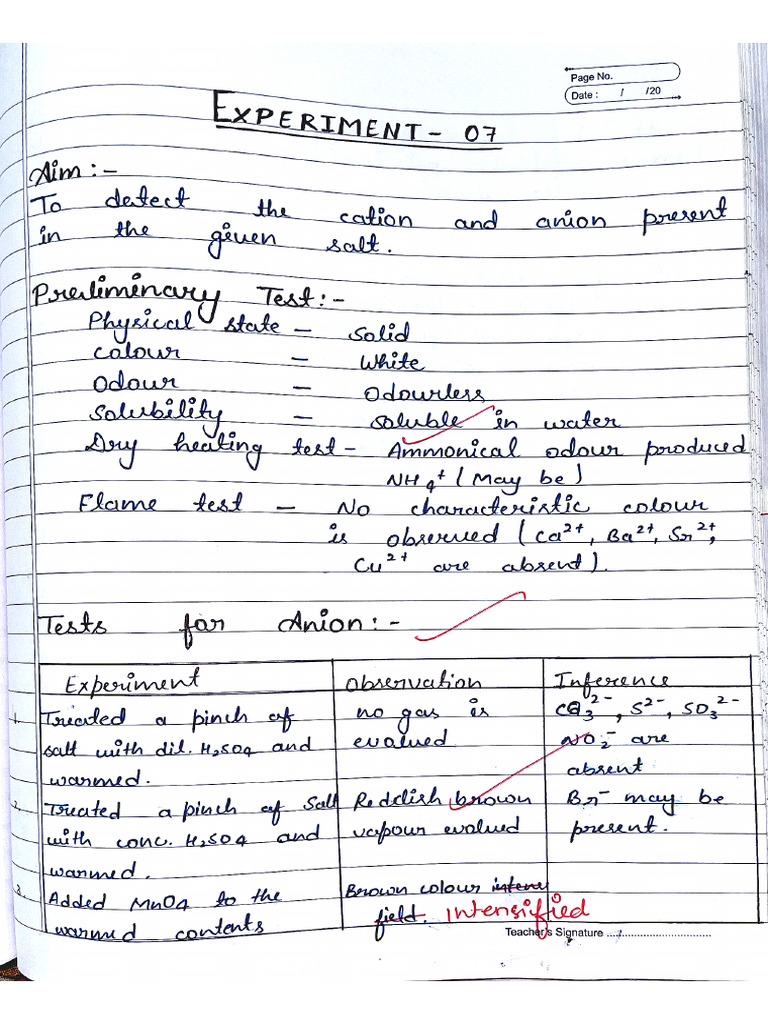 Page No.
Date : / /20
EXPERIMENT - 07
Aim :-
To detect the cation and anion present
in the given salt.
Preliminary Test :-
Physical state - solid
colour - White
Odour - Odourless
Solubility - soluble in water
Dry heating test - Ammonical odour produced
NH4+ (May be)
Flame test - No characteristic colour
is observed (Ca2+, Ba2+, Sr2+,
Cu2+ are absent).
Tests for Anion :-
Experiment Observation Inference
1. Treated a pinch of no gas is CO3 2-, S2-, SO3 2-
salt with dil. H2SO4 and evalued NO2- are
warmed. absent
2. Treated a pinch of Salt Reddish brown Br- may be
with conc. H2SO4 and vapour evalued present.
warmed.
3. Added MnO4 to the Brown colour intene
warmed contents field. Intensified
Teacher's Signature